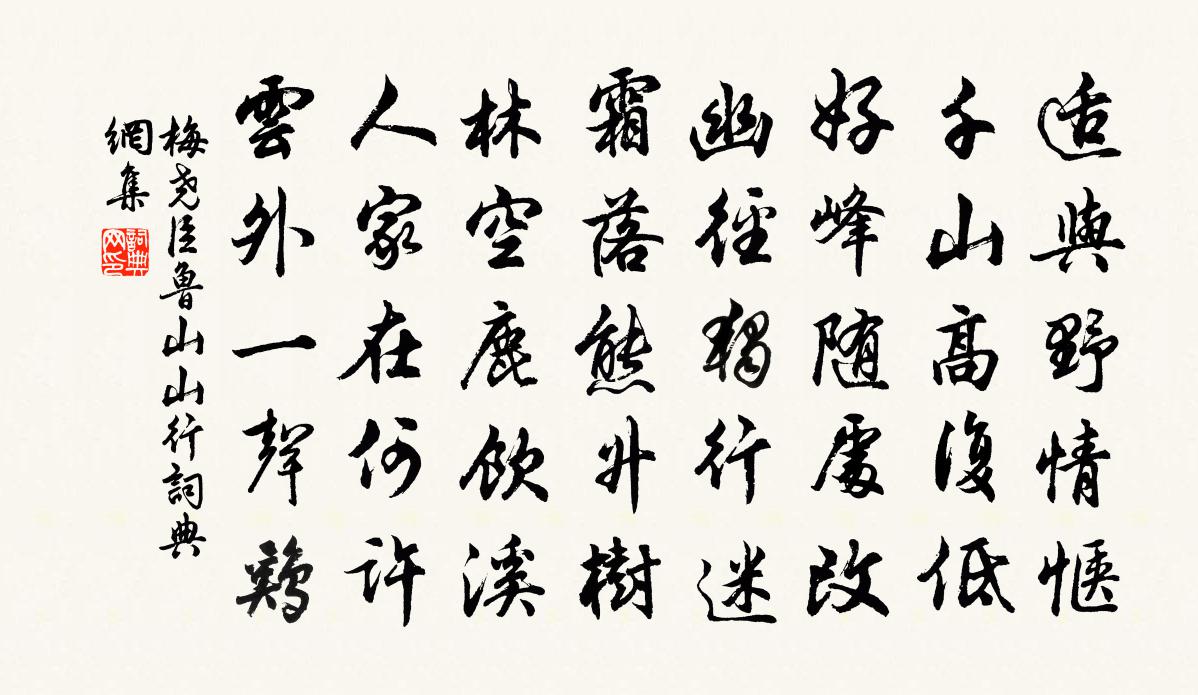 适與野情愜
千山高復低
好峰随處改
幽徑獨行迷
霜落熊升樹
林空鹿飲溪
人家在何許
雲外一聲鷄
梅堯臣魯山山行詞典
網集
詞典
网印